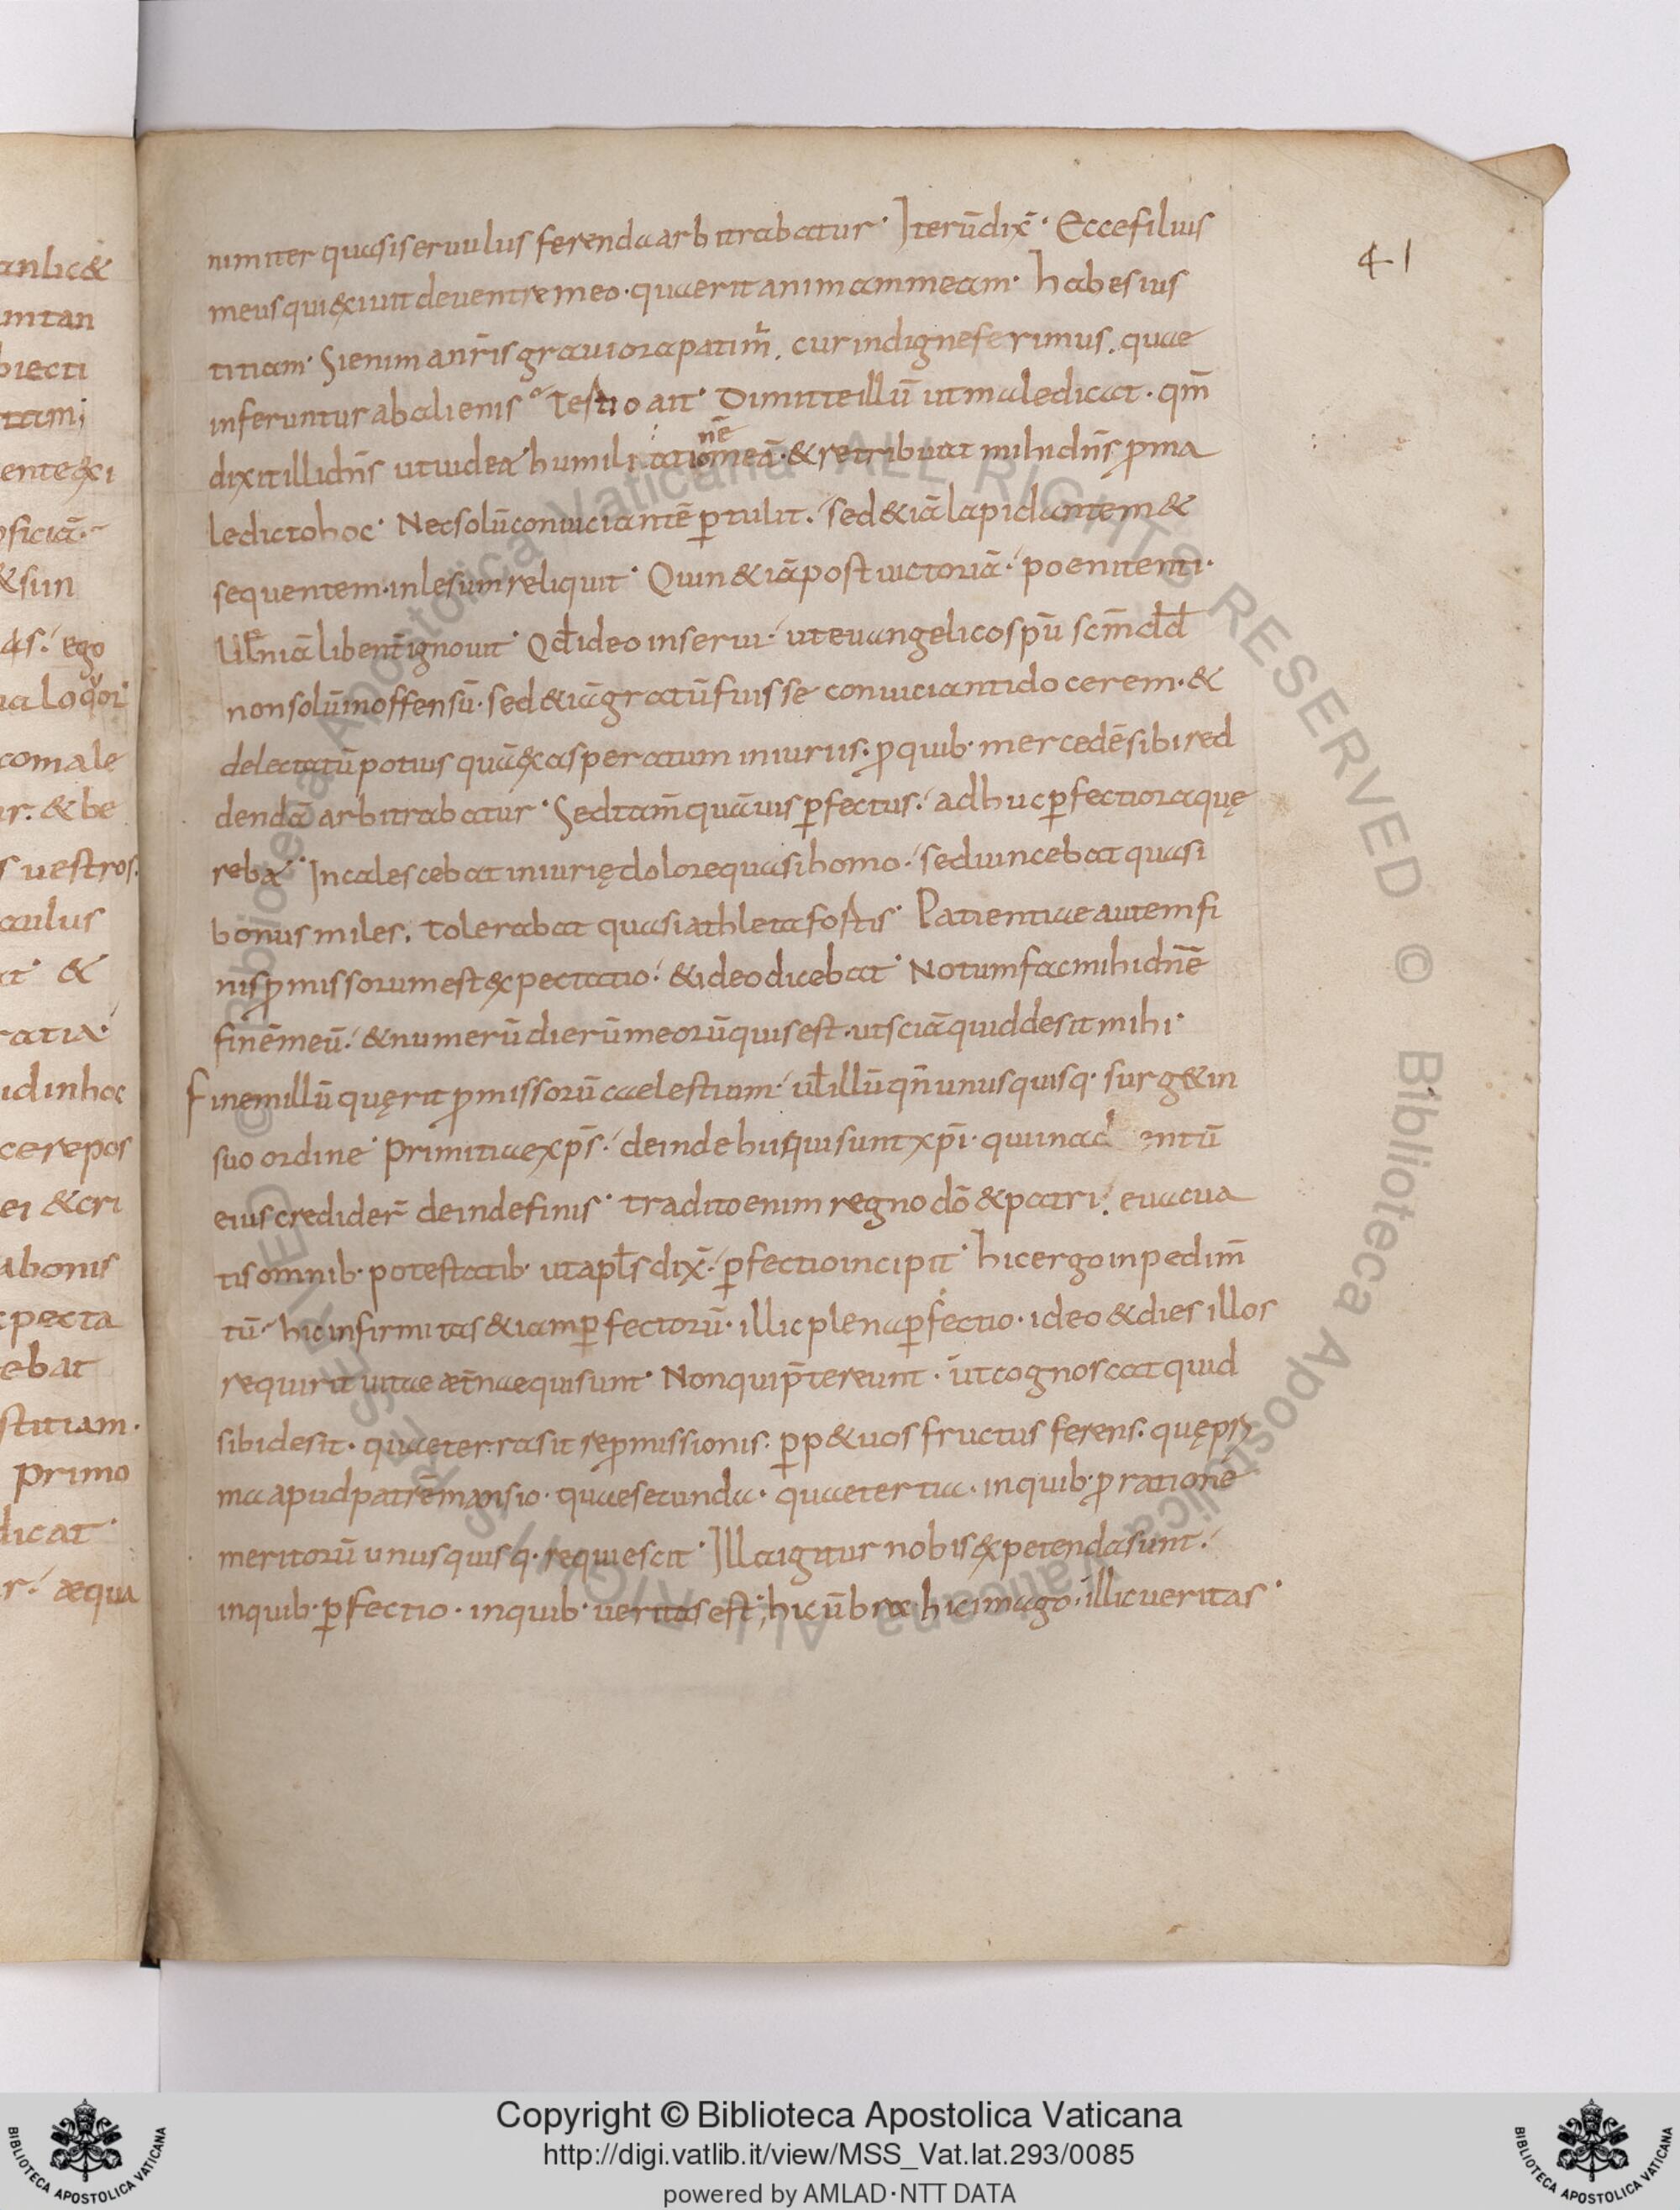 nimiter quasi seruulus ferenda arbitrabatur· Iterū dix̄· Ecce filius
meus qui exiuit de uentre meo· quaerit animam meam· habes ius
titiam· Si enim a nr̄is grauiora patim̄, cur indigne ferimus, quae
inferuntur ab alienis Testio ait· Dimitte illū ut maledicat· qm̄
dixit illi dn̄s ut uideā humili atio nē meā· & retribuat mihi dn̄s ꝓ ma
ledicto hoc· Nec solū conuiciantē ꝑtulit, sed & iā lapidantem &
sequentem· inlesum reliquit· Quin & iā post uictoriā· poenitenti·
ueniā libent̄ ignouit· Qd̄ ideo inserui· ut euangelico spū scm̄ dd̄
non solū inoffensū· sed & iā gratū fuisse conuicianti docerem· &
delectatū potius quā exasperatum iniuriis· ꝓ quib· mercedē sibi red
dendā arbitrabatur· Sed tam̄ quāuis ꝑfectus· adhuc ꝑfectiora quę
rebat· Incalescebat iniurię dolore quasi homo· sed uincebat quasi
bonus miles, tolerabat quasi athleta fortis· Patientiae autem fi
nis ꝓmissorum est expectatio· & ideo dicebat· Notum fac mihi dn̄e
finē meū· & numerū dierū meorū quis est· ut sciā quid desit mihi·
Finem illū quęrit ꝓmissorū caelestium· ul̄ illū qn̄ unusquisq· surg& in
suo ordine· Primitiae xp̄s· deinde hii qui sunt xp̄i· qui in ad entū
eius credider̄ deinde finis· tradito enim regno dō & patri· euacua
tis omnib· potestatib· ut apl̄s dix̄· ꝑfectio incipit· hic ergo inpedim̄
tū· hic infirmitas & iam ꝑfectorū· illic plena ꝑfectio· ideo & dies illos
requirit uitae aet̄nae qui sunt· Non qui p̄tereunt· ut cognoscat quid
sibi desit· quae terra sit reꝓmissionis· ꝑp&uos fructus ferens· quę pri
ma apud patrē mansio· quae secunda· quae tertia· in quib· ꝓ rationē
meritorū unusquisq· requiescit· Illa igitur nobis expetenda sunt·
in quib· ꝑfectio· in quib· ueritas est; hic ūbra· hic imago· illic ueritas·
41
Copyright © Biblioteca Apostolica Vaticana
http://digi.vatlib.it/view/MSS_Vat.lat.293/0085
powered by AMLAD·NTT DATA